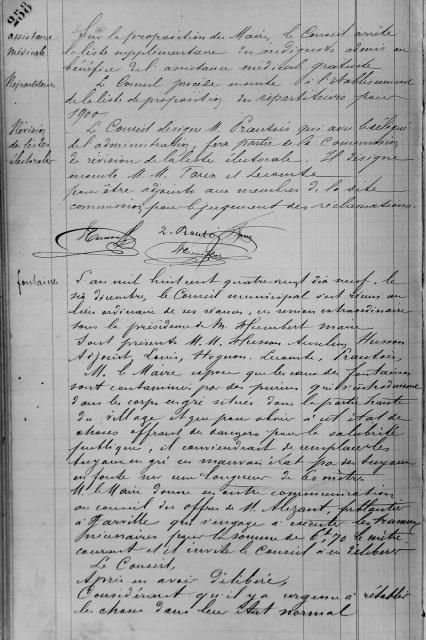 258
assistance
médicale
Sur la proposition du Maire, le Conseil arrête
la liste supplémentaire des indigents admis au
bénéfice de l'assistance médicale gratuite
Répartiteurs
Le Conseil procède ensuite à l'établissement
de la liste de proposition des répartiteurs pour
1900.
Révision
de listes
électorales
Le Conseil désigne M. Prautois qui avec le délégué
de l'administration, fera partie de la Commission
de révision de la liste électorale. Il désigne
ensuite M. M. et Lecomte
pour être adjoints aux membres de la dite
commission pour le jugement des réclamations.
fontaines
L'an mil huit cent quatre-vingt dix neuf, le
six décembre, le Conseil municipal s'est réuni au
lieu ordinaire de ses séances, en session extraordinaire
sous la présidence de M. Humbert maire
Sont présents M. M. Husson Aurélien, Husson
Adjoint, Louis, Hognon, Lecomte, Prautois,
M. le Maire expose que les eaux des fontaines
sont contaminées par des purins qui s'introduisent
dans les corps en grès situés dans la partie haute
du village et que pour obvier à cet état de
choses offrant des dangers pour la salubrité
publique, il conviendrait de remplacer les
tuyaux en grès en mauvais état par des tuyaux
en fonte sur une longueur de 60 mètres
M. le Maire donne en outre communication
au conseil des offres de M.
à qui s'engage à exécuter les travaux
pour la somme de 6f90 le mètre
courant et il invite le Conseil à en délibérer
Le Conseil,
Après en avoir délibéré,
Considérant qu'il y a urgence à rétablir
les choses dans leur état normal